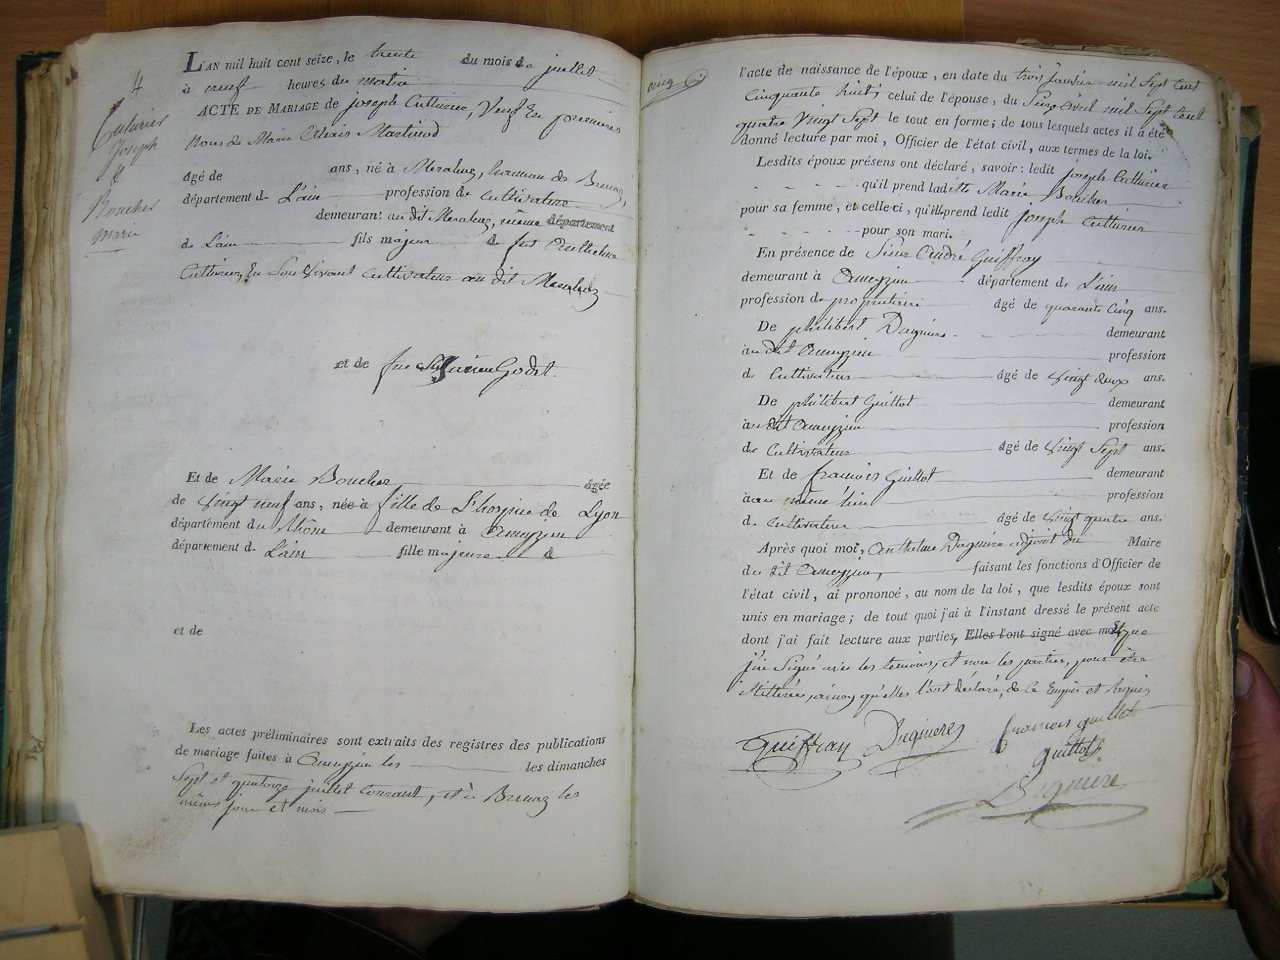 4
Culurier
Joseph
&
Boucher
marie
L'AN mil huit cent seize, le trente du mois de juillet
à neuf heures du matin
ACTE DE MARIAGE de joseph Cutturier, Veuf En premieres
Noces de Marie Martinod
âgé de ans, né à hameau de Brenaz,
département de L'ain profession de Cultivateur
demeurant au dit même département
de L'ain fils majeur de feu
Cutturier, En Son Vivant Cultivateur au dit
et de feue Godet.
Et de Marie Boucher âgée
de Vingt neuf ans, née à fille de L'hospice de Lyon
département du Rhône demeurant à Ameyzieu
département de L'ain fille majeure de
et de
Les actes préliminaires sont extraits des registres des publications
de mariage faites à Ameyzieu les les dimanches
Sept et quatorze juillet Courant, et à Brenaz les
mêmes jour et mois
l'acte de naissance de l'époux, en date du trois janvier mil Sept cent
Cinquante huit; celui de l'épouse, du avril mil Sept cent
quatre Vingt Sept le tout en forme; de tous lesquels actes il a été
donné lecture par moi, Officier de l'état civil, aux termes de la loi.
Lesdits époux présens ont déclaré, savoir: ledit joseph Cutturier
qu'il prend ladite Marie Boucher
pour sa femme, et celle-ci, qu'elle prend ledit joseph Cutturier
pour son mari.
En présence de Sieur André Guiffray
demeurant à Ameyzieu département de L'ain
profession de propriétaire âgé de quarante Cinq ans.
De philibert Daguiere demeurant
au dit Ameyzieu profession
de Cultivateur âgé de Vingt deux ans.
De philibert Guillot demeurant
au dit Ameyzieu profession
de Cultivateur âgé de Vingt Sept ans.
Et de francois Guillot demeurant
au même lieu profession
de Cultivateur âgé de Vingt quatre ans.
Après quoi moi, Anthelme Daguiere adjoint du Maire
du dit Ameyzieu, faisant les fonctions d'Officier de
l'état civil, ai prononcé, au nom de la loi, que lesdits époux sont
unis en mariage; de tout quoi j'ai à l'instant dressé le présent acte
dont j'ai fait lecture aux parties, Elles l'ont signé avec moi Et que
j'ai Signé avec les temoins, et non les parties, pour être
illitérées, ainsy qu'elles l'ont déclaré, de ce Enquis et Requis
Guiffray Daguieres francois guillot
guillot
Daguiere